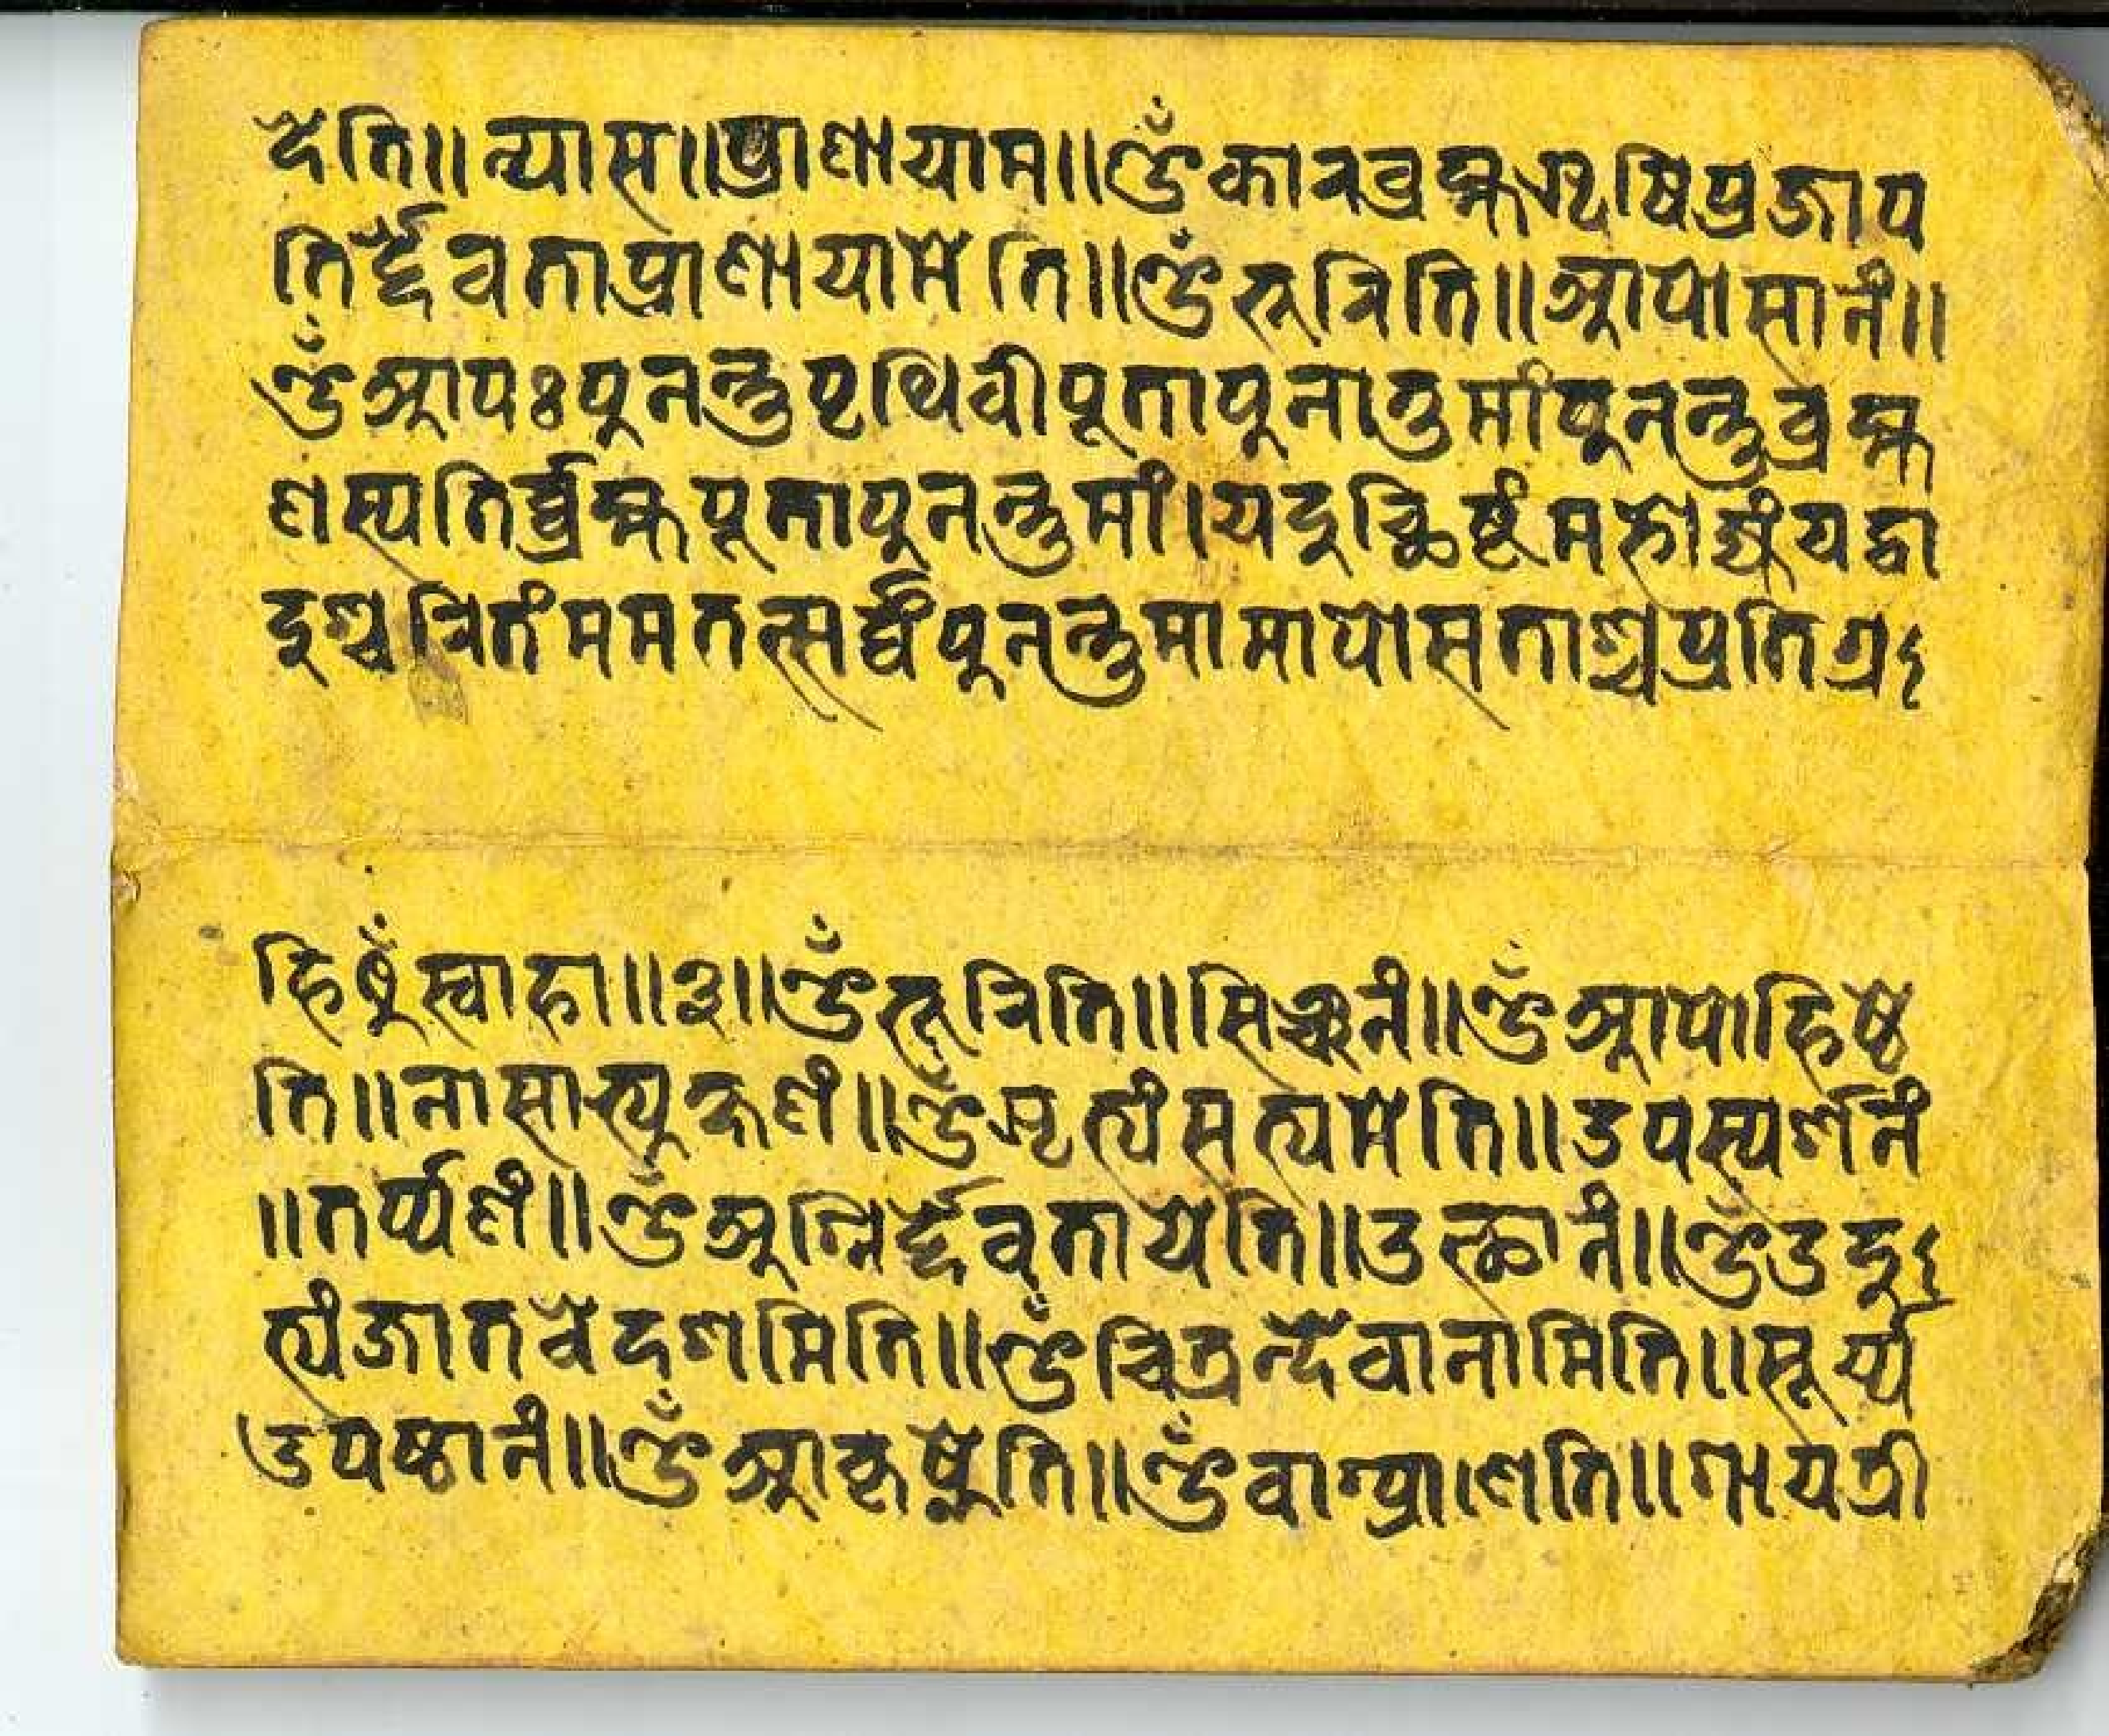 देति॥न्यास॥प्राणायाम॥ॐकारब्रह्मऋषिप्रजाप
तिर्द्देवताप्राणायामेति॥ॐभूरिति॥आपोसानं॥
ॐआपःपुनन्तुपृथिवीपूतापुनातुमांपुनन्तुब्रह्म
णस्पतिर्ब्रह्मपूतापुनन्तुमां।यदुच्छिष्टंमभोज्यंयद्वा
दुश्चरितंममतत्सर्व्वंपुनन्तुमामापोसताश्चप्रतिग्र
हिषुँस्वाहा॥३॥ॐभूरिति॥सिञ्चनं॥ॐआपोहिष्ठे
ति॥नासाभ्युक्षणं॥ॐऋत्यंसत्यमेति॥उपस्पर्शनं
॥तर्प्पणं॥ॐअग्निर्द्देवतायेति॥उत्थानं॥ॐउदु
त्यंजातवेदशमिति॥ॐचित्रन्देवानामिति॥सूर्य्य
उपस्थानं॥ॐआकृष्णेति॥ॐवाग्प्राणति॥गायत्री